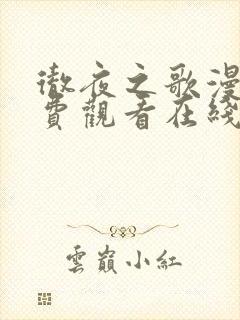 徹夜之歌漫
費觀看在綫
雲巔小紅